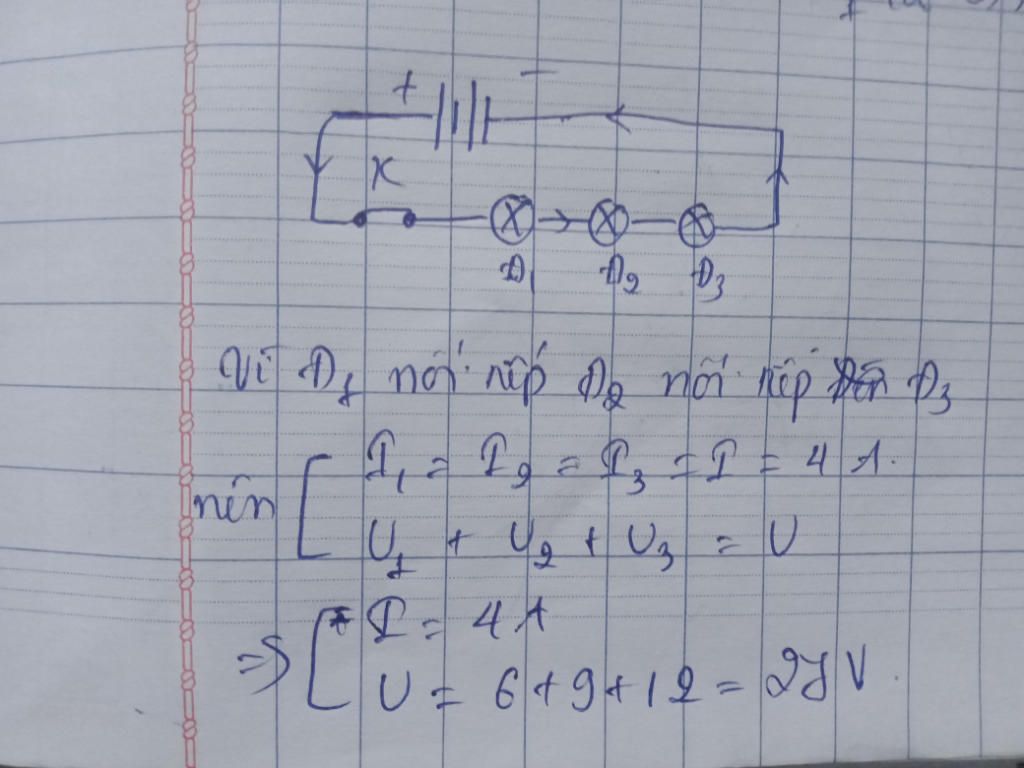 + −
K
Đ1 Đ2 Đ3
Vì Đ1 nối tiếp Đ2 nối tiếp Đ3
nên
I1 = I2 = I3 = I = 4 A.
U1 + U2 + U3 = U
=>
I = 4 A
U = 6 + 9 + 12 = 27 V.